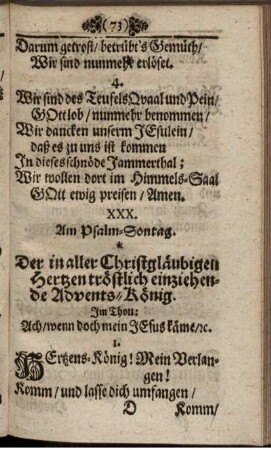 (73)
Darum getrost/ betrübt's Gemüth/
Wir sind nunmehr erlöset.
4.
Wir sind des Teufels Qvaal und Pein/
GOtt lob/ nunmehr benommen/
Wir dancken unserm JEsulein/
daß es zu uns ist kommen
In dieses schnöde Jammerthal;
Wir wollen dort im Himmels-Saal
GOtt ewig preisen/ Amen.
XXX.
Am Psalm-Sontag.
*
Der in aller Christgläubigen
Hertzen tröstlich einziehen-
de Advents-König.
Im Thon:
Ach/ wenn doch mein JEsus käme/ ꝛc.
1.
HErtzens-König! Mein Verlan-
gen!
Komm/ und lasse dich umfangen/
D Komm/